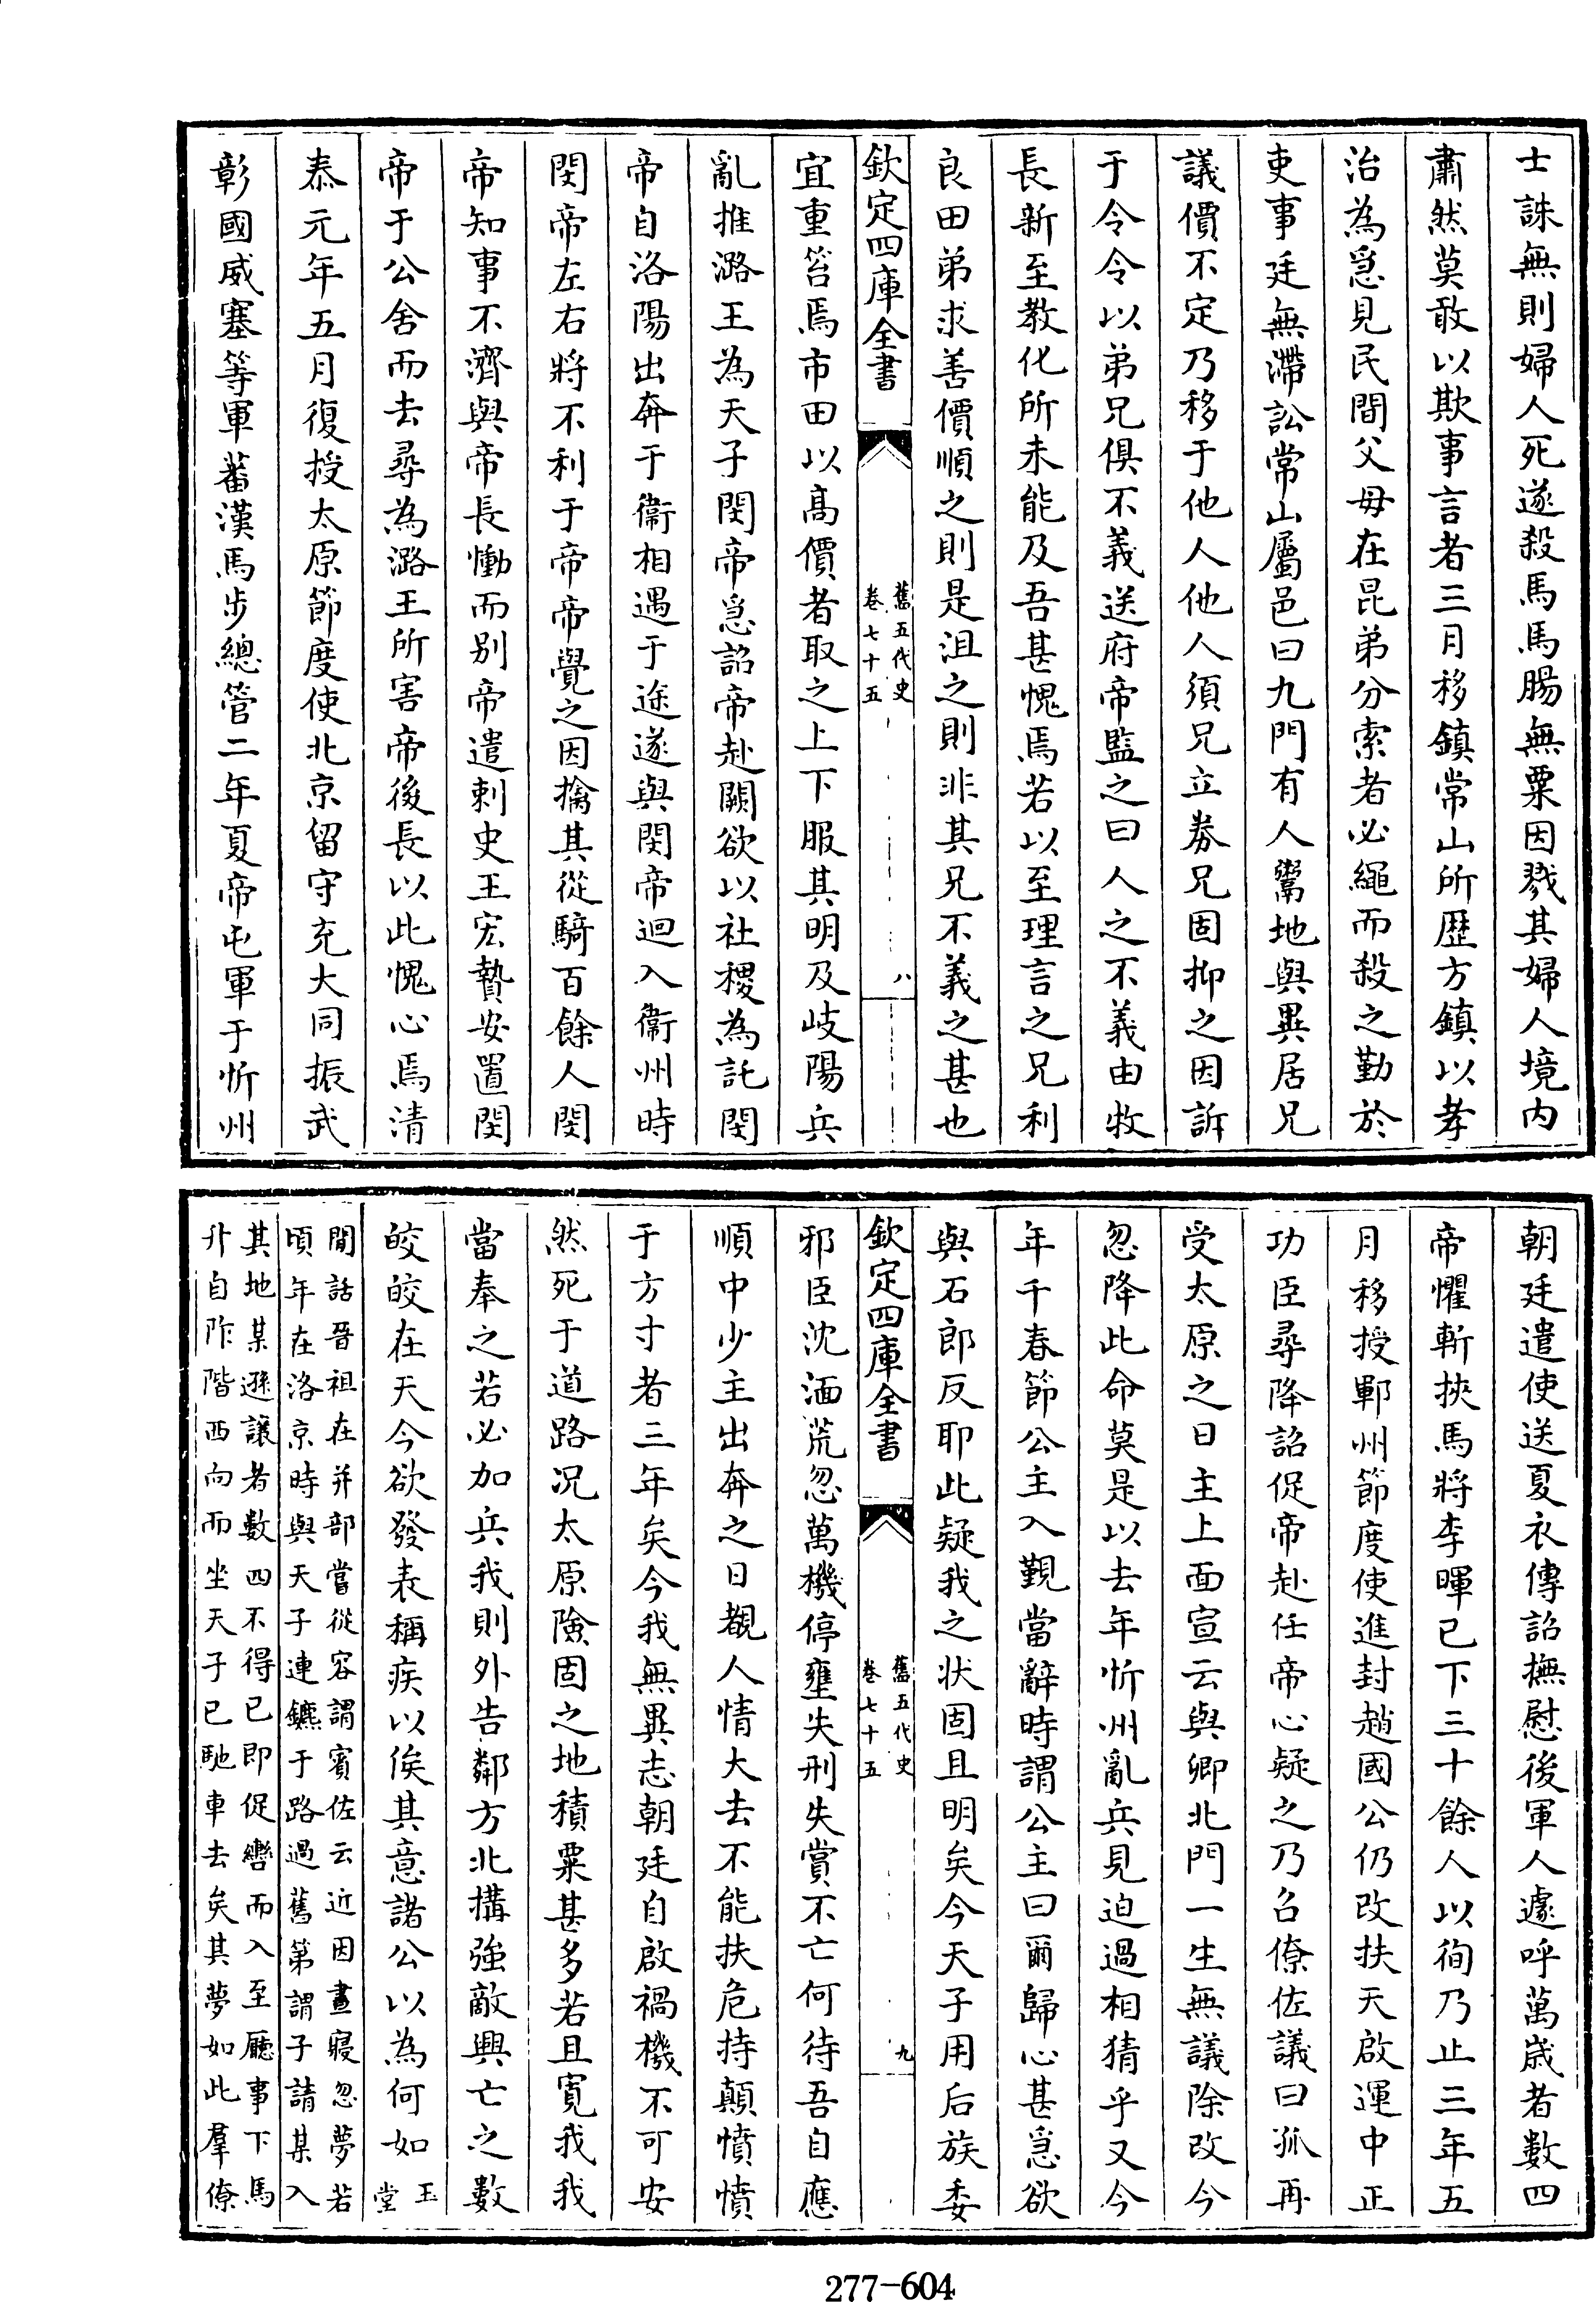 士誅無則婦人死遂殺馬馬腸無粟因戮其婦人境内
肅然莫敢以欺事言者三月移鎮常山所歴方鎮以孝
治為急見民間父母在昆弟分索者必繩而殺之勤於
吏事廷無滯訟常山屬邑曰九門有人鬻地與異居兄
議價不定乃移于他人他人須兄立劵兄固抑之因訴
于令令以弟兄俱不義送府帝監之曰人之不義由牧
長新至教化所未能及吾甚愧焉若以至理言之兄利
良田弟求善價順之則是沮之則非其兄不義之甚也
欽定四庫全書
舊五代史
卷七十五
八
宜重笞焉市田以髙價者取之上下服其明及岐陽兵
亂推潞王為天子閔帝急詔帝赴闕欲以社稷為託閔
帝自洛陽出奔于衞相遇于途遂與閔帝迴入衞州時
閔帝左右將不利于帝帝覺之因擒其從騎百餘人閔
帝知事不濟與帝長慟而别帝遣刺史王宏贄安置閔
帝于公舍而去尋為潞王所害帝後長以此愧心焉清
泰元年五月復授太原節度使北京留守充大同振武
彰國威塞等軍蕃漢馬步總管二年夏帝屯軍于忻州
朝廷遣使送夏衣傳詔撫慰後軍人遽呼萬歳者數四
帝懼斬挾馬將李暉已下三十餘人以徇乃止三年五
月移授鄆州節度使進封趙國公仍改扶天啟運中正
功臣尋降詔促帝赴任帝心疑之乃召僚佐議曰孤再
受太原之日主上面宣云與卿北門一生無議除改今
忽降此命莫是以去年忻州亂兵見迫過相猜乎又今
年千春節公主入覲當辭時謂公主曰爾歸心甚急欲
與石郎反耶此疑我之状固且明矣今天子用后族委
欽定四庫全書
舊五代史
卷七十五
九
邪臣沈湎荒忽萬機停壅失刑失賞不亡何待吾自應
順中少主出奔之日覩人情大去不能扶危持顛憤憤
于方寸者三年矣今我無異志朝廷自啟禍機不可安
然死于道路况太原險固之地積粟甚多若且寛我我
當奉之若必加兵我則外告鄰方北搆強敵興亡之數
皎皎在天今欲發表稱疾以俟其意諸公以為何如玉
堂
閒話晉祖在并部嘗從容謂賓佐云近因晝寢忽夢若
頃年在洛京時與天子連鑣于路過舊第謂子請某入
其地某遜讓者數四不得已即促轡而入至廳事下馬
升自阼階西向而坐天子已馳車去矣其夢如此羣僚
277-604